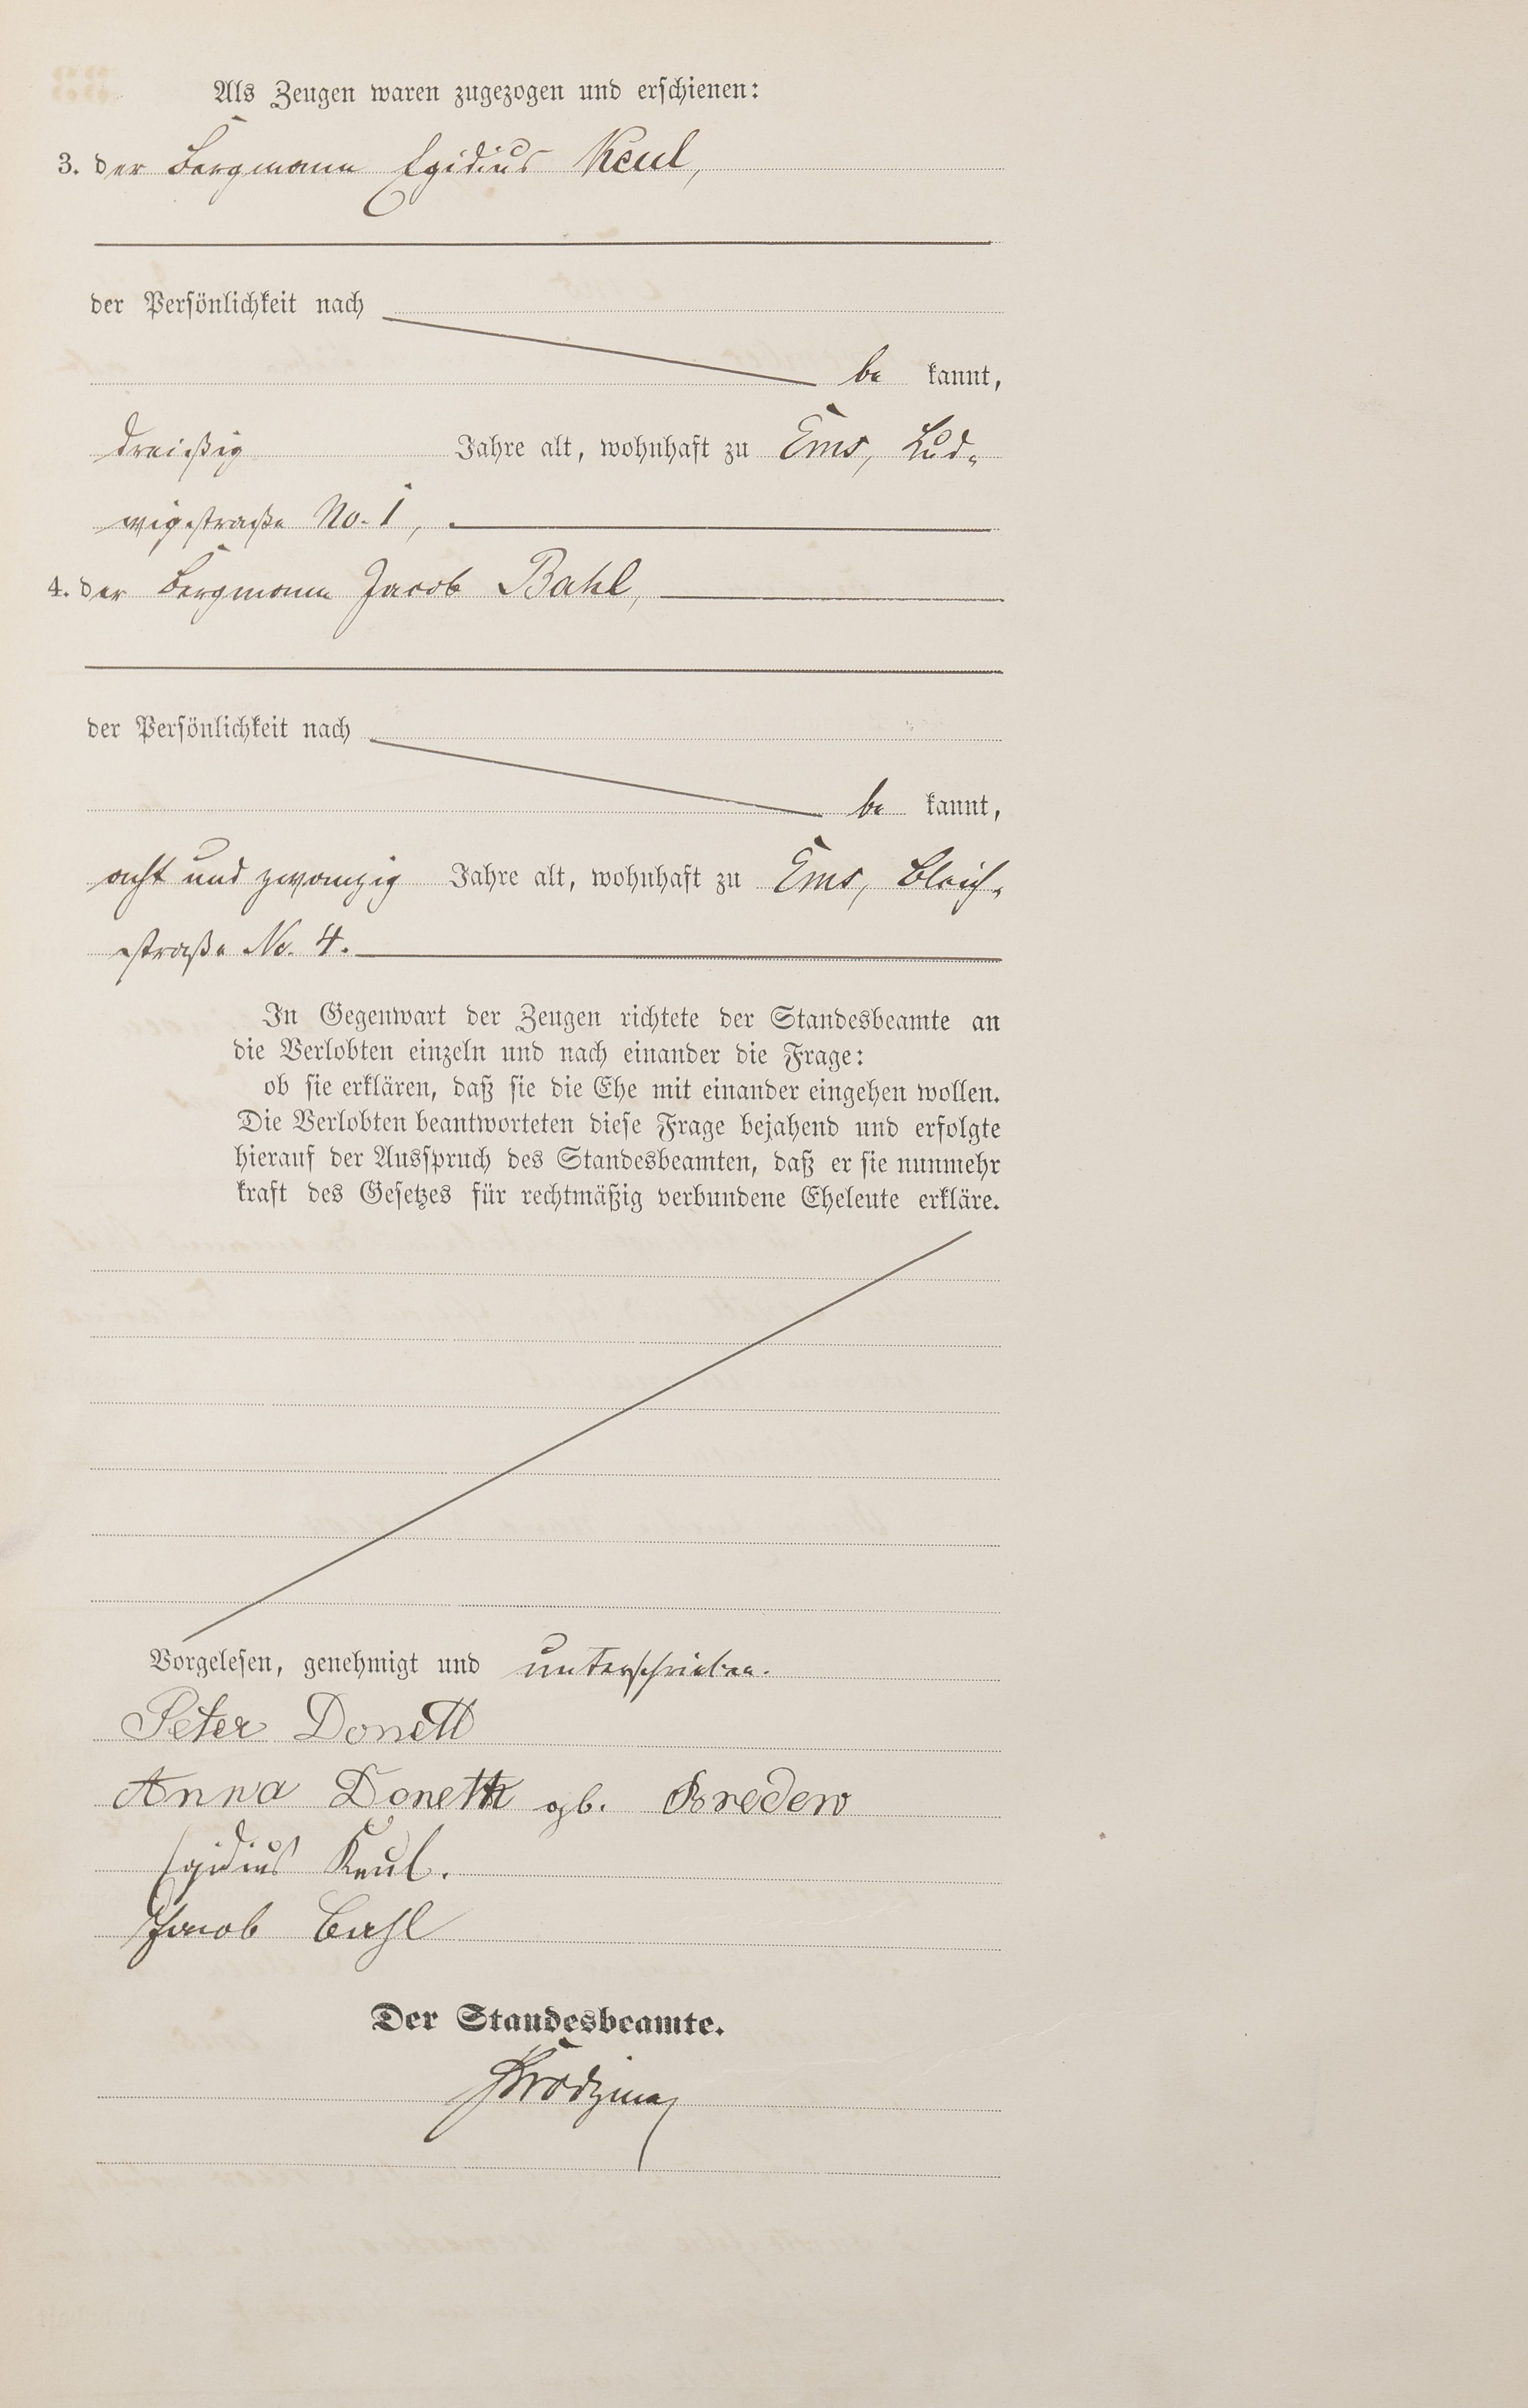 Als Zeugen waren zugezogen und erschienen:
3. der Bergmann Egidius Keul,
der Persönlichkeit nach
be kannt,
dreißig Jahre alt, wohnhaft zu Ems, Lud-
wigstraße No. 1,
4. der Bergmann Jacob Bahl,
der Persönlichkeit nach
be kannt,
acht und zwanzig Jahre alt, wohnhaft zu Ems, Bleich-
straße No. 4.
In Gegenwart der Zeugen richtete der Standesbeamte an
die Verlobten einzeln und nach einander die Frage:
ob sie erklären, daß sie die Ehe mit einander eingehen wollen.
Die Verlobten beantworteten diese Frage bejahend und erfolgte
hierauf der Ausspruch des Standesbeamten, daß er sie nunmehr
kraft des Gesetzes für rechtmäßig verbundene Eheleute erkläre.
Vorgelesen, genehmigt und unterschrieben.
Peter Donett
Anna Doneth gb. Bredew
Egidius Keul.
Jacob Bahl
Der Standesbeamte.